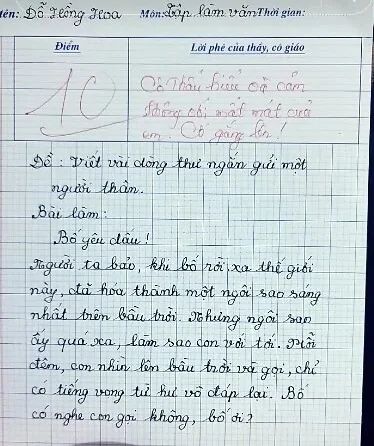 tên: Đỗ Hồng Hoa Môn: Tập làm văn Thời gian:
Điểm
Lời phê của thầy, cô giáo
10
Cô thấu hiểu và cảm
thông với mất mát của
em. Cố gắng lên!
Đề: Viết vài dòng thư ngắn gửi một
người thân.
Bài làm:
Bố yêu dấu!
Người ta bảo, khi bố rời xa thế giới
này, đã hóa thành một ngôi sao sáng
nhất trên bầu trời. Nhưng ngôi sao
ấy quá xa, làm sao con với tới. Mỗi
đêm, con nhìn lên bầu trời và gọi, chỉ
có tiếng vọng từ hư vô đáp lại. Bố
có nghe con gọi không, bố ơi?